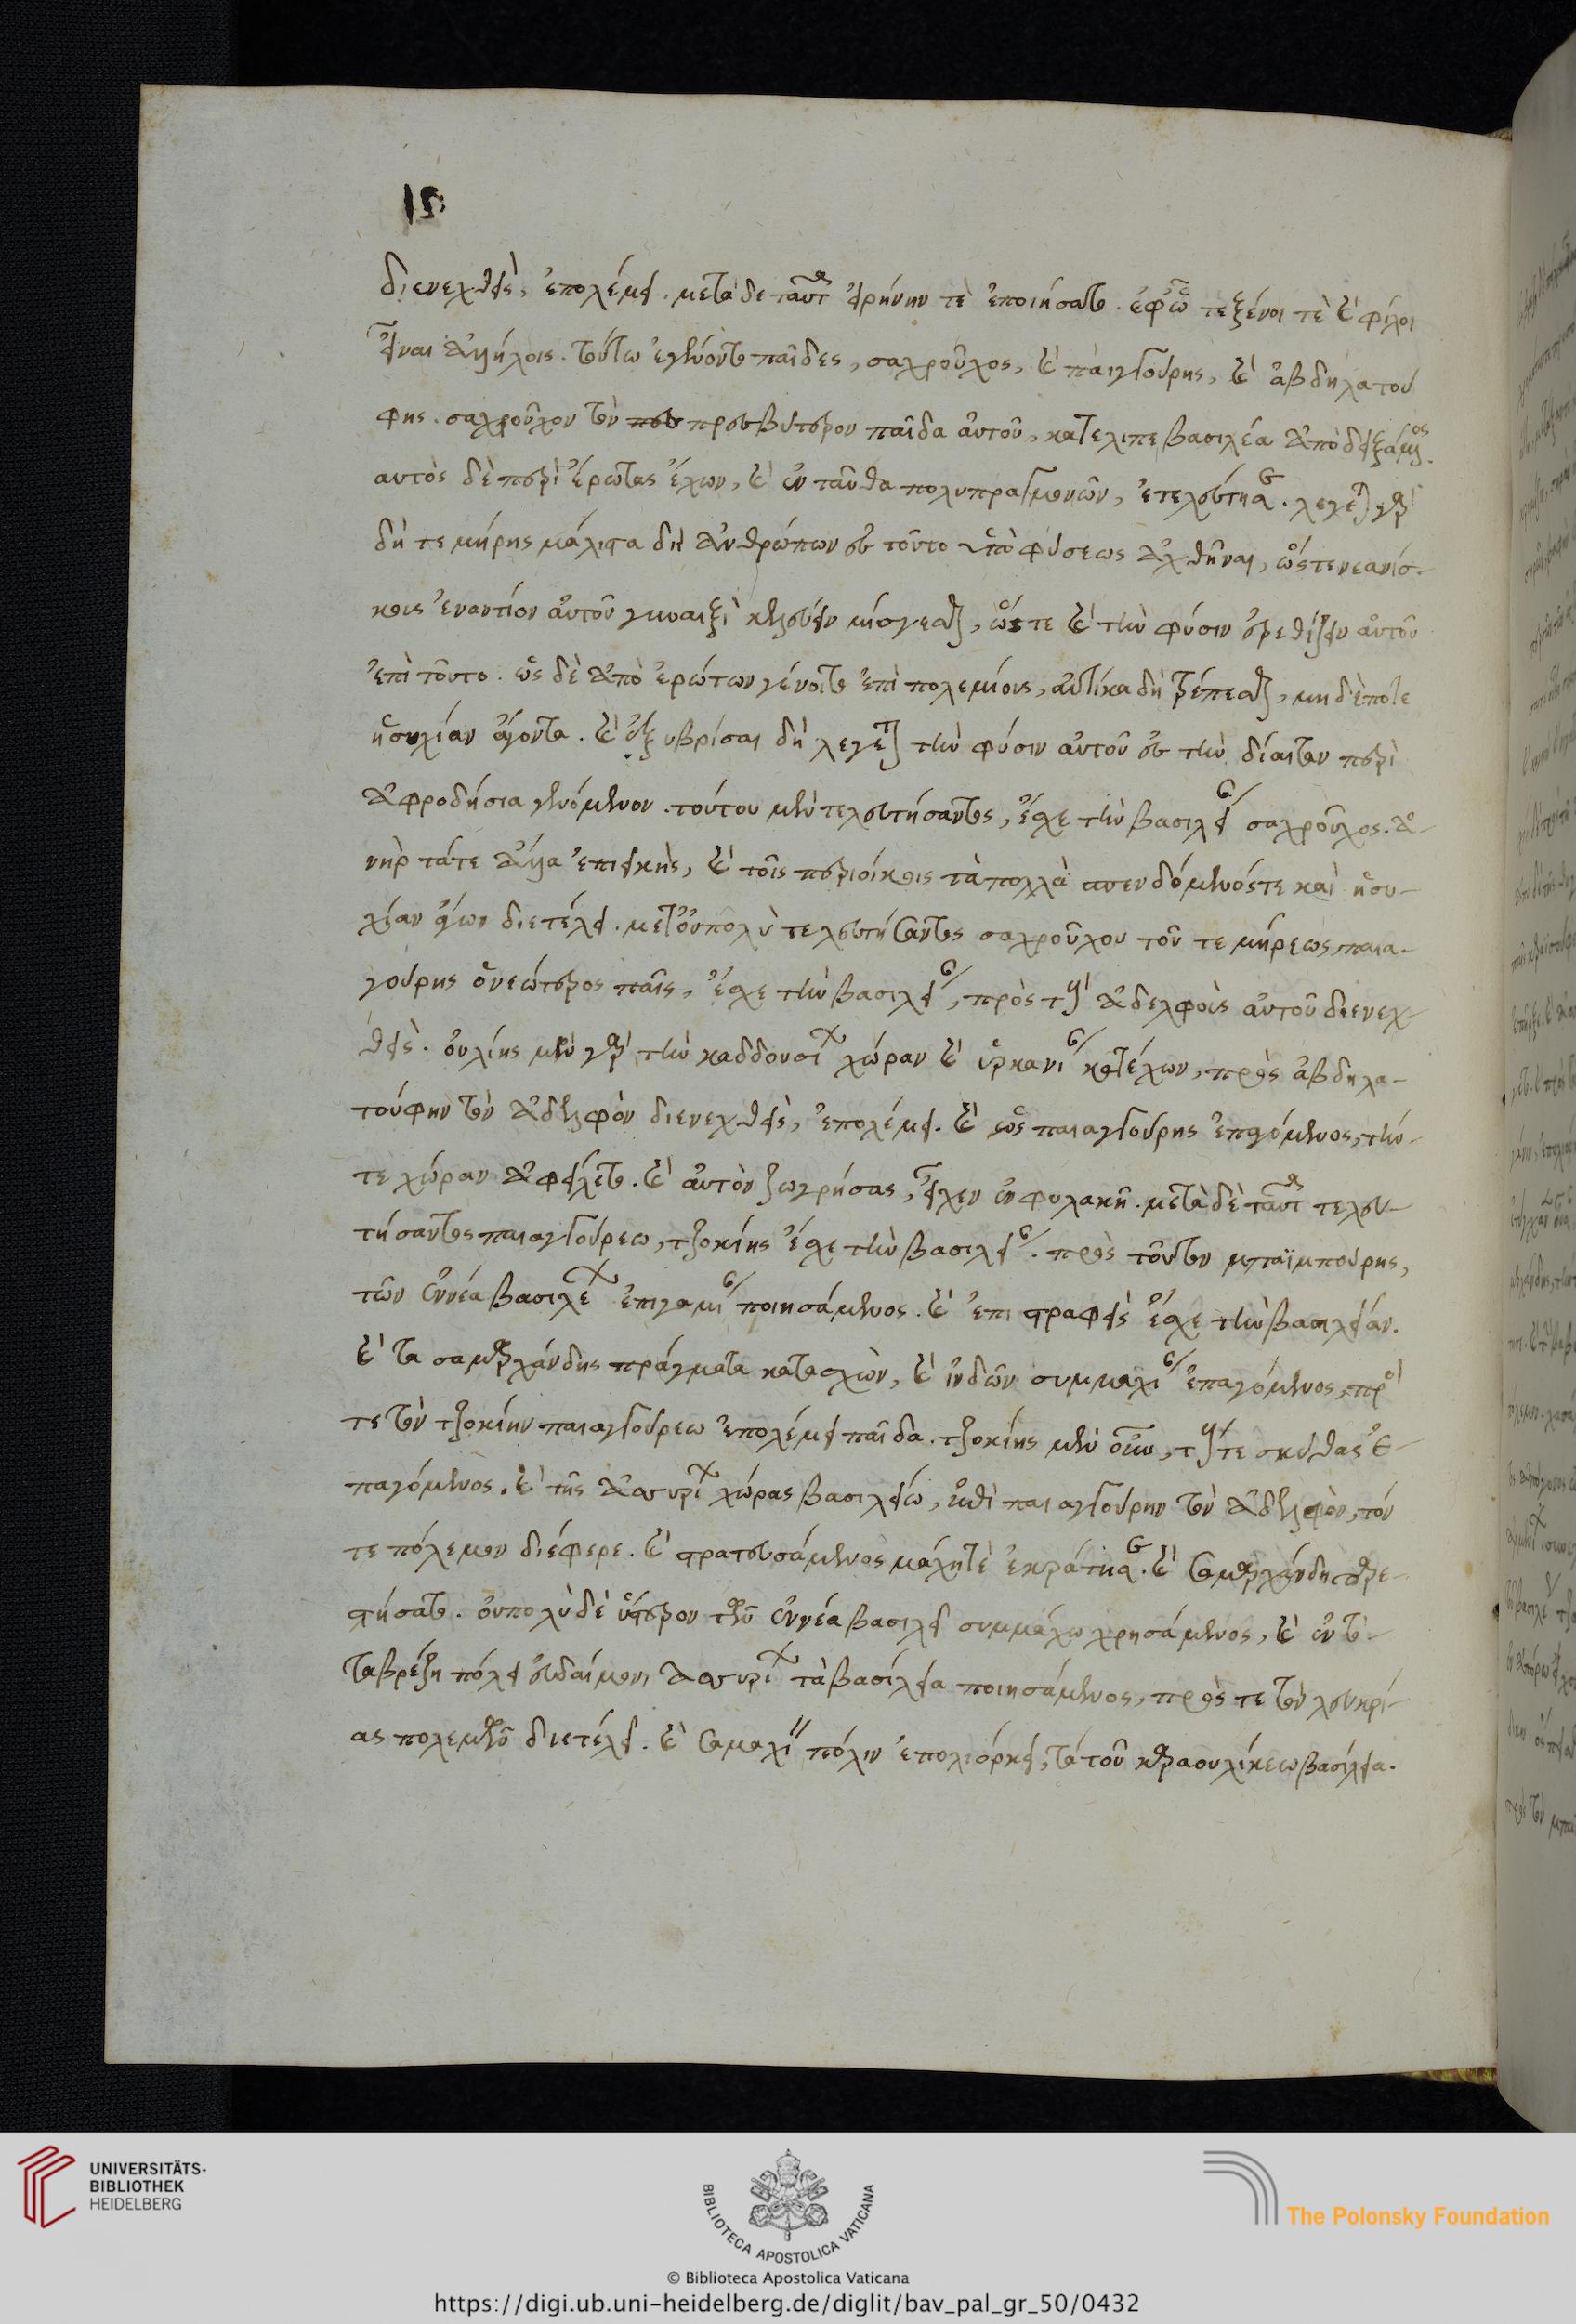 διενεχθεὶς, ἐπολέμει. μετὰ δὲ ταῦτα εἰρήνην τὲ ἐποιήσατο. ἐφ᾽ ὧ τε ξένοι τὲ καὶ φίλοι
εἶναι ἀλλήλοις. τούτω ἐγένοντο παῖδες, σαχροῦχος, καὶ παιαγγούρης, καὶ ἀβδηλατού
φης. σαχροῦχον τὸν πρεσβύτερον παῖδα αὐτοῦ, κατέλιπε βασιλέα ἀποδειξάμενος.
αυτὸς δὲ περὶ ἔρωτας ἔχων, καὶ ἐνταῦθα πολυπραγμονῶν, ἐτελεύτησε. λέγεται γὰρ
δὴ τεμήρης μάλιστα δὴ ἀνθρώπων ἐς τοῦτο ὑπὸ φύσεως ἀχθῆναι, ὥστε νεανίσ-
κοις ἐναντίον αὐτοῦ γυναιξὶ κελεύειν μίσγεσθαι, ὥστε καὶ τὴν φύσιν ἐρεθίζειν αὐτοῦ
ἐπὶ τοῦτο. ὡς δὲ ἀπὸ ἐρώτων γένοιτο ἐπὶ πολεμίους, αὐτίκα δὴ τρέπεσθαι, μηδέποτε
ἡσυχίαν ἄγοντα. καὶ ἐξυβρίσαι δὴ λέγεται τὴν φύσιν αὐτοῦ ἐς τὴν δίαιταν περὶ
ἀφροδήσια γενόμενον. τούτου μὲν τελευτήσαντος, ἔσχε τὴν βασιλείαν σαχροῦχος. ἀ-
νὴρ τά τε ἄλλα ἐπιεικὴς, καὶ τοῖς περιοίκοις τὰ πολλὰ σπενδόμενός τε καὶ ἡσυ-
χίαν ἄγων διετέλει. μετ᾽ οὐ πολὺ τελευτήσαντος σαχρούχου τοῦ τεμήρεως, παια-
γούρης ὁ νεώτερος παῖς, ἔσχε τὴν βασιλείαν, πρὸς τοὺς ἀδελφοὺς αὐτοῦ διενεχ-
θεὶς. οὐλίης μὲν γὰρ τὴν καδδουσίων χώραν καὶ ὑρκανίαν κατέχων, πρὸς ἀβδηλα-
τούφην τὸν ἀδελφὸν διενεχθεὶς, ἐπολέμει. καὶ ὡς παιαγγούρης ἐπαγόμενος, τήν
τε χώραν ἀφείλετο. καὶ αὐτὸν ζωγρήσας, εἶχεν ἐν φυλακῆ. μετὰ δὲ ταῦτα τελευ-
τήσαντος παιαγγούρεω, τζοκίης ἔσχε τὴν βασιλείαν. πρὸς τοῦτον μπαϊμπούρης,
τῶν ἐννέα βασιλέων ἐπιγαμίαν ποιησάμενος. καὶ ἐπιστραφεὶς ἔσχε τὴν βασιλείαν.
καὶ τα σαμαρχάνδης πράγματα κατασχὼν, καὶ ἰνδῶν συμμαχίαν ἐπαγόμενος, πρός
τε τὸν τζοκίην παιαγγούρεω ἐπολέμει παῖδα. τζοκίης μὲν οὖν, τούς τε σκύθας ἐ-
παγόμενος. καὶ τῆς ἀσσυρίων χώρας βασιλεύων, ἐπὶ παιαγγούρην τὸν ἀδελφὸν, τόν
τε πόλεμον διέφερε. καὶ στρατευσάμενος μάχη τὲ ἐκράτησε. καὶ σαμαρχάνδην παρε-
στήσατο. οὐ πολὺ δὲ ὕστερον τῶν ἐννέα βασιλεῖ συμμάχω χρησάμενος, καὶ ἐν τ-
ταβρέζη πόλει εὐδαίμονι ἀσσυρίων τὰ βασίλεια ποιησάμενος, πρός τε τὸν λευκρί-
ας πολεμῶν διετέλει. καὶ σαμαχίην πόλιν ἐπολιόρκει, τὰ τοῦ καραουλίκεω βασίλεια.
UNIVERSITÄTS-
BIBLIOTHEK
HEIDELBERG
BIBLIOTECA APOSTOLICA VATICANA
The Polonsky Foundation
© Biblioteca Apostolica Vaticana
https://digi.ub.uni-heidelberg.de/diglit/bav_pal_gr_50/0432